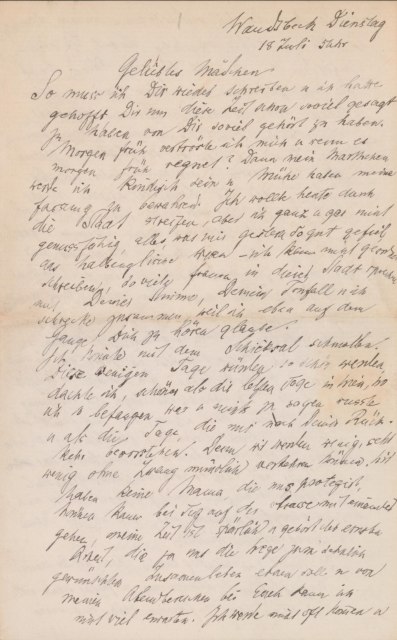 Wandsbeck Dienstag
18 Juli 5 Uhr
Geliebtes Mädchen
So muss ich Dir wieder schreiben u ich hatte
gehofft, Dir um diese Zeit schon soviel gesagt
zu haben von Dir soviel gehört zu haben.
Morgen früh vertröste ich mich u wenn es
morgen früh regnet? Dann mein Marthchen
werde ich kindisch sein u Mühe haben meine
Fassung zu bewahren. Ich wollte heute durch
die Stadt streifen, aber ich ganz u gar nicht
genussfähig, alles was mir gestern so gut gefiel
das
schreiben, so viele Frauen in dieser Stadt sprechen
mit Deiner Stimme, Deinem Tonfall u ich
schrecke zusammen weil ich eben auf dem
Gange Dich zu hören glaube.
Ich könnte mit dem Schicksal schmollen.
Diese wenigen Tage würden so schön werden,
dachte ich, schöner als die letzten Tage in Wien, wo
ich so befangen was u nicht zu sagen wusste
u als die Tage, die mir nach Deiner Rück-
kehr bevorstehen. Denn wir werden wenig, sehr
wenig ohne Zwang mündlich verkehren können, wir
haben keine Mama, die uns protegirt,
können kaum bei Tag auf der Strasse mit einander
gehen, meine Zeit ist spärlich u gehört der ernsten
Arbeit, die ja uns die Wege zum
gewünschten Zusammenleben ebnen soll u von
meinen Abendbesuchen bei Euch kann ich
nicht viel erwarten. Ich werde nicht oft kommen u